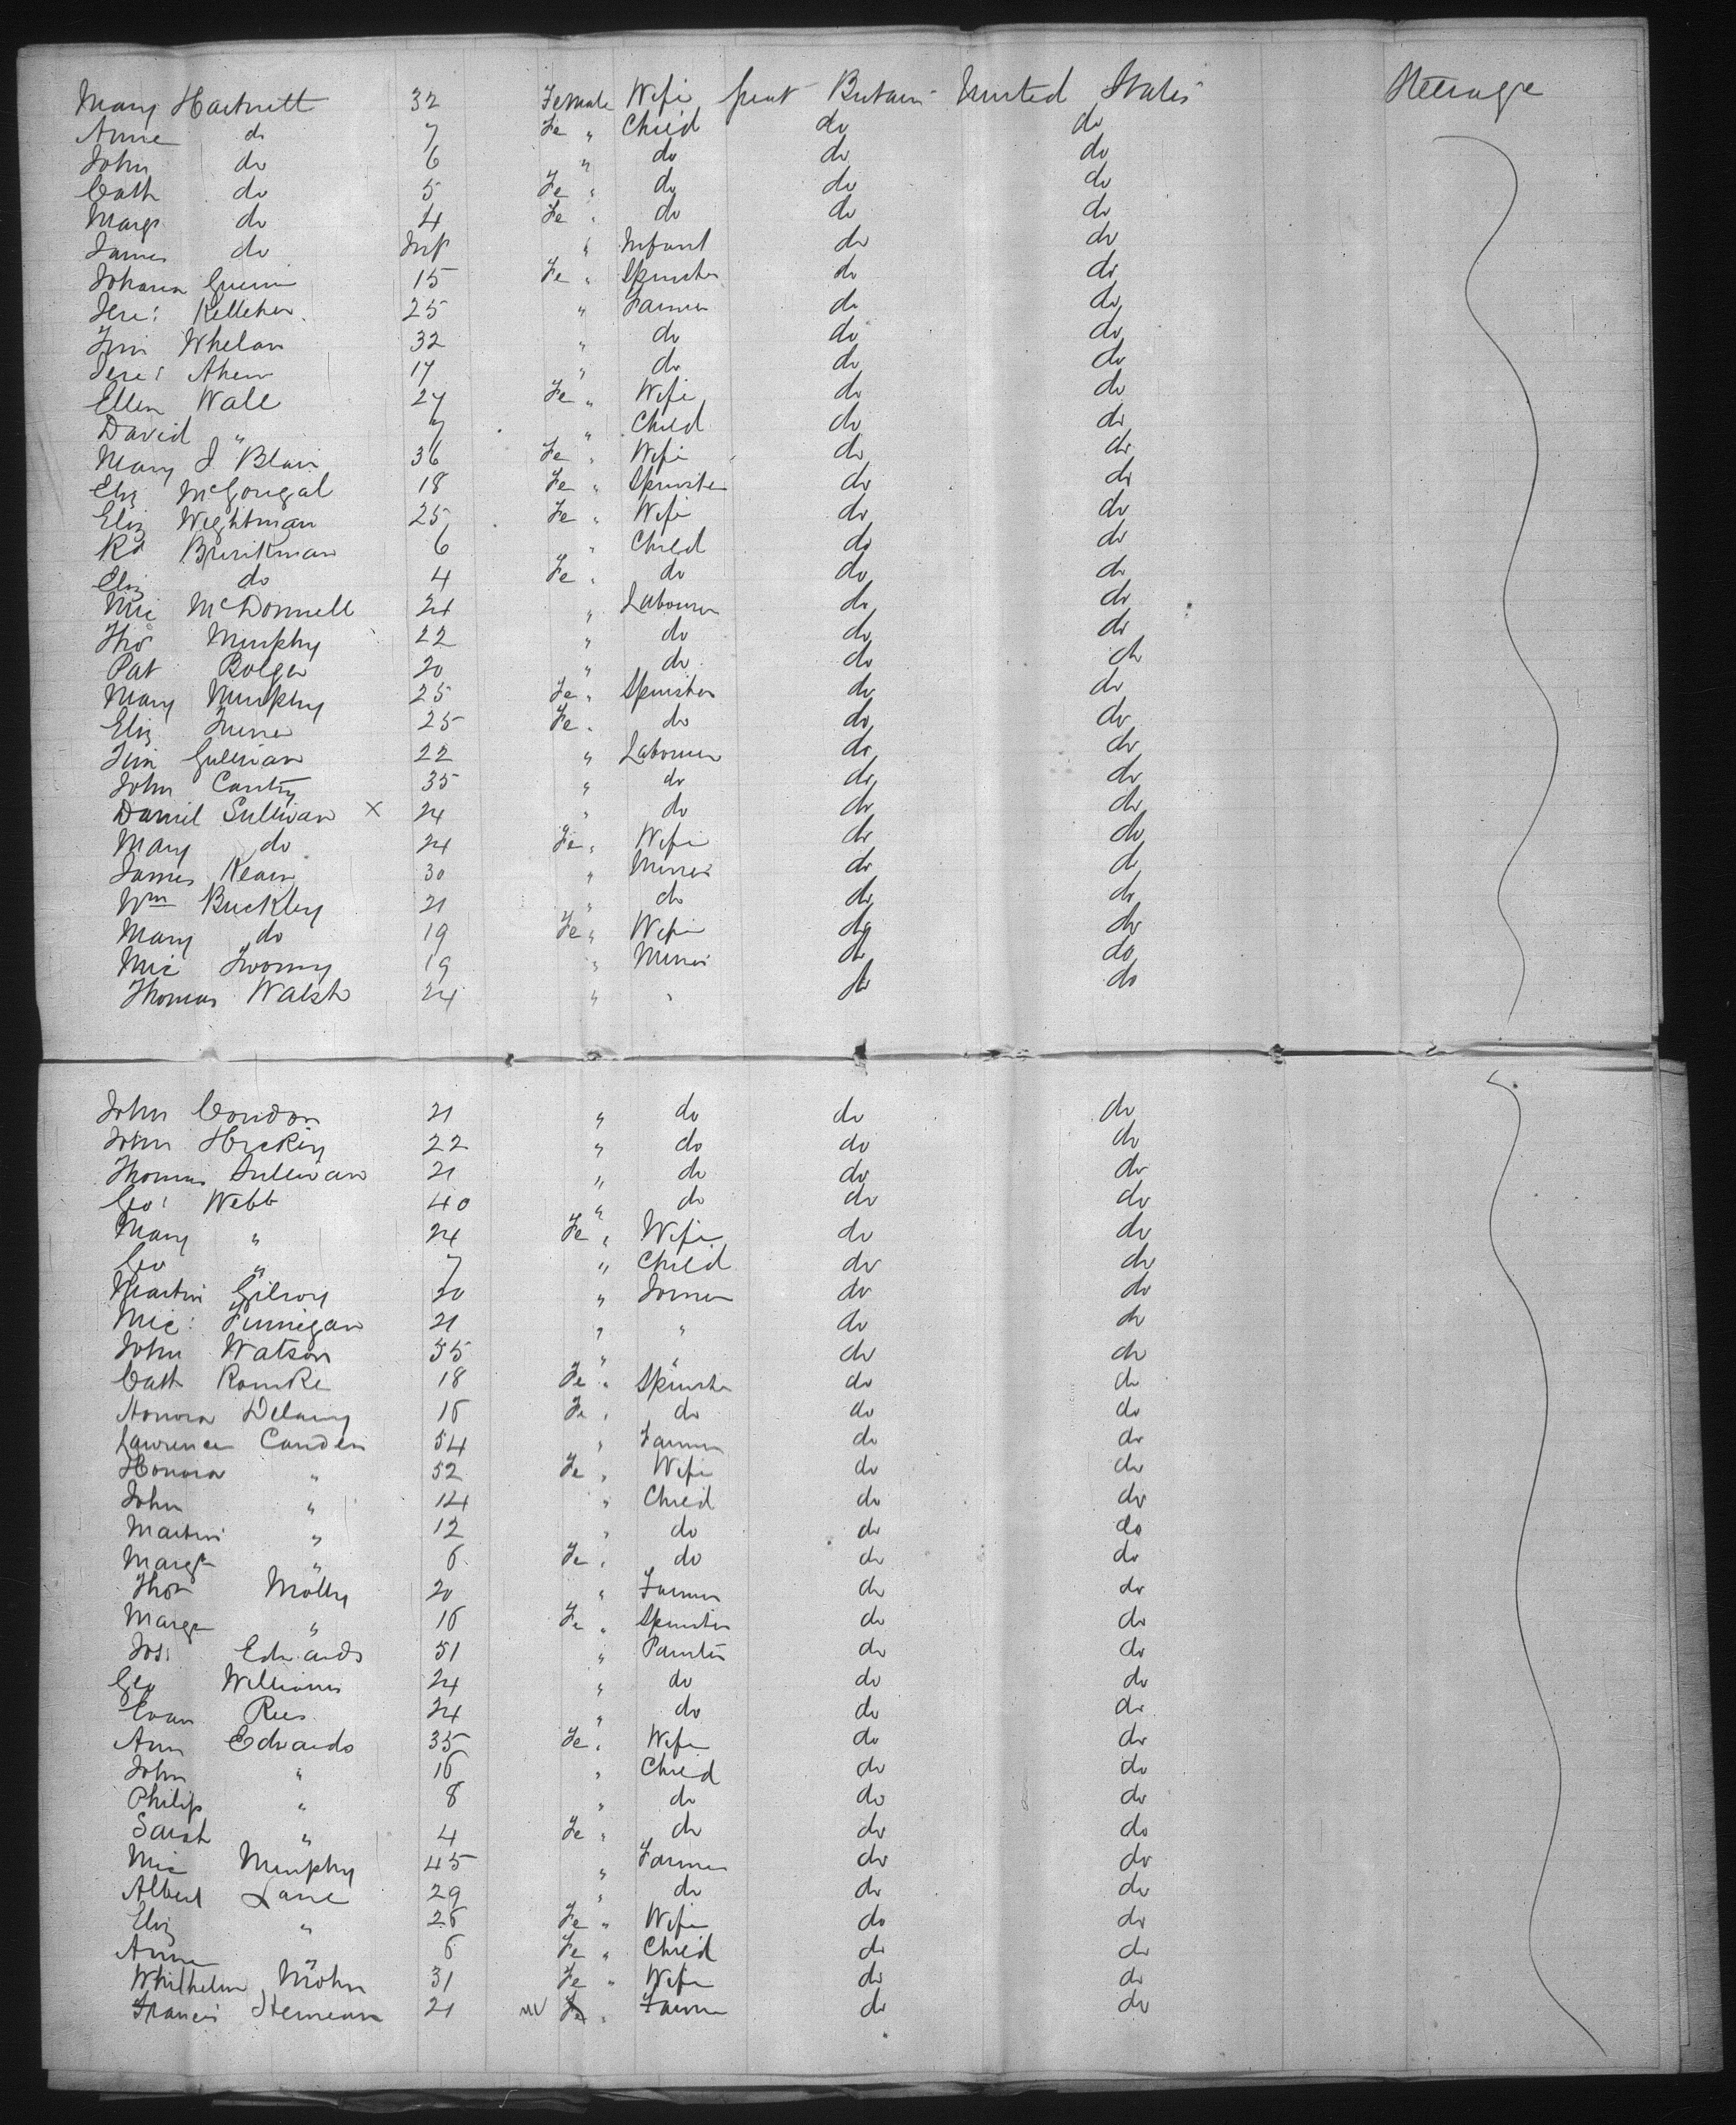 Mary Hartnett 32 Female Wife Great Britain United States Steerage
Anne do 7 Fe " Child do do
John do 6 " do do do
Cath do 5 Fe " do do do
Margt do 4 Fe " do do do
James do Inf " Infant do do
Johana 15 Fe " Spinster do do
Jere: Kelleher 25 " Farmer do do
Tim Whelan 32 " do do do
Jere: Ahern 17 " do do do
Ellen Wall 27 Fe " Wife do do
David " 7 " Child do do
Mary J Blair 36 Fe " Wife do do
Eliz McGonigal 18 Fe " Spinster do do
Eliz Wightman 25 Fe " Wife do do
Rd Brinkman 6 " Child do do
Eliz do 4 Fe " do do do
Mic McDonnell 24 " Labourer do do
Thos Murphy 22 " do do do
Pat Bolger 20 " do do do
Mary Murphy 25 Fe " Spinster do do
Eliz 25 Fe " do do do
Tim Sullivan 22 " Labourer do do
John 35 " do do do
Daniel Sullivan x 24 " do do do
Mary do 24 Fe " Wife do do
James 30 " Miner do do
Wm Buckley 21 " do do do
Mary do 19 Fe " Wife do do
Mic Twomy 19 " Miner do do
Thomas Walsh 24 " " do do
John Condon 21 " do do do
John Hickey 22 " do do do
Thomas Sullivan 21 " do do do
Geo: Webb 40 " do do do
Mary " 24 Fe " Wife do do
Geo " 7 " Child do do
Martin Gilroy 20 " Joiner do do
Mic: Finnigan 21 " " do do
John Watson 35 " " do do
Cath 18 Fe " Spinster do do
Honora Delaney 16 Fe " do do do
Lawrence 54 " Farmer do do
Honora " 52 Fe " Wife do do
John " 14 " Child do do
Martin " 12 " do do do
Margt " 6 Fe " do do do
Thos Molly 20 " Farmer do do
Margt " 16 Fe " Spinster do do
Jos: Edwards 51 " Painter do do
Geo Williams 24 " do do do
Evan Rees 24 " do do do
Ann Edwards 35 Fe " Wife do do
John " 16 " Child do do
Philip " 8 " do do do
Sarah " 4 Fe " do do do
Mic Murphy 45 " Farmer do do
Albert Lane 29 " do do do
Eliz " 26 Fe " Wife do do
Anne " 6 Fe " Child do do
Whilhelm Mohn 31 Fe " Wife do do
Francis 21 Fe " Farmer do do